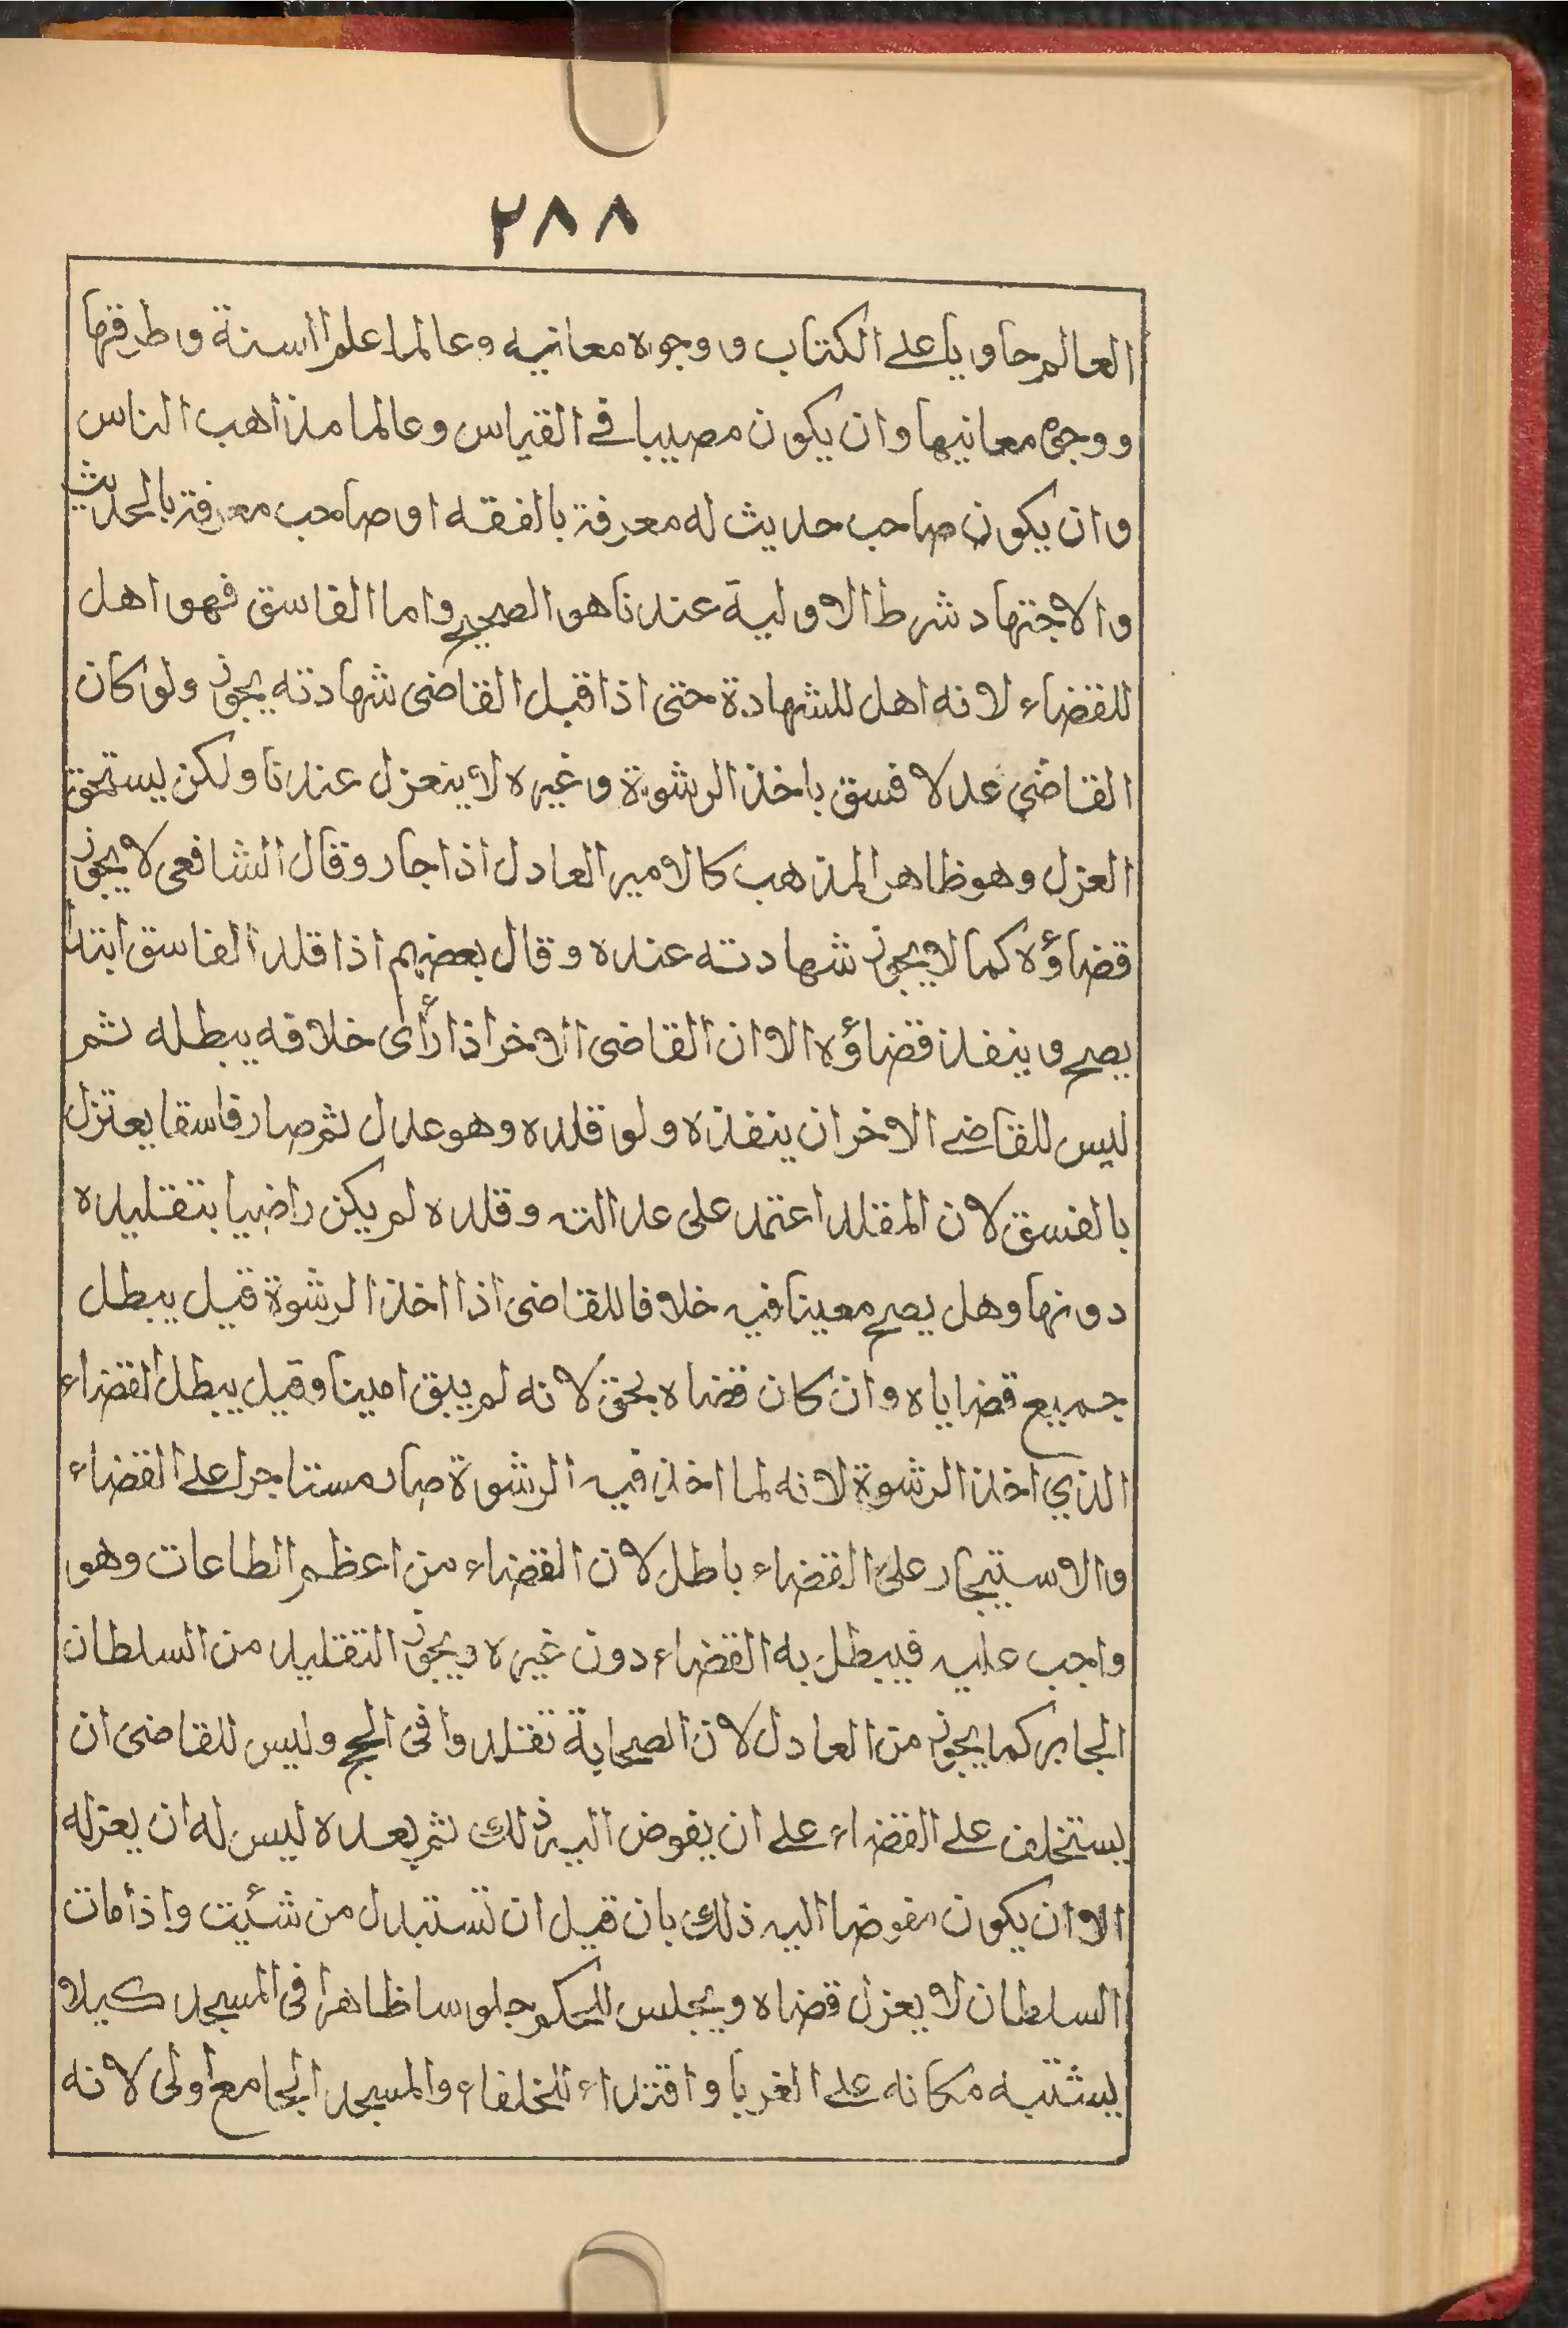 ٢٨٨
العالم حاويا على الكتاب ووجوه معانيه وعالما علم السنة وطرقتها
ووجوه معانيها وان يكون مصيبا في القياس وعالما مذاهب الناس
وان يكون صاحب حديث له معرفة بالفقه او صاحب معرفة بالحديث
والاجتهاد شرط الاولية عندنا هو الصحيح واما الفاسق فهو اهل
للقضاء لانه اهل للشهادة حتى اذا قبل القاضى شهادته يجوز ولو كان
القاضي عدلا فسق باخذ الرشوة وغيره لا ينعزل عندنا ولكن يستحق
العزل وهو ظاهر المذهب كالامير العادل اذا جار وقال الشافعى لا يجوز
قضاؤه كما لا يجوز شهادته عنده وقال بعضهم اذا قلد الفاسق ابتدأ
يصح وينفذ قضاؤه الا ان القاضى الاخر اذا رأى خلافه يبطله ثم
ليس للقاضي الاخر ان ينفذه ولو قلده وهو عدل ثم صار فاسقا يعتزل
بالفسق لان المقلد اعتمد على عدالته وقلده لم يكن راضيا بتقليده
دونها وهل يصح معينا فيه خلافا للقاضى اذا اخذ الرشوة قيل يبطل
جميع قضاياه وان كان قضاه بحق لانه لم يبق امينا وقيل يبطل القضاء
الذي اخذ الرشوة لانه لما اخذ فيه الرشوة صار مستاجرا على القضاء
والاستيجار على القضاء باطل لان القضاء من اعظم الطاعات وهو
واجب عليه فيبطل به القضاء دون غيره ويجوز التقليد من السلطان
الجابر كما يجوز من العادل لان الصحابة تقلدوا فى الحج وليس للقاضى ان
يستخلف على القضاء على ان يفوض اليه ذلك ثم بعده ليس له ان يعزله
الا ان يكون مفوضا اليه ذلك بان قيل ان تستبدل من شئيت واذا مات
السلطان لا يعزل قضاه ويجلس للحكم جلوسا ظاهرا فى المسجد كيلا
يشتبه مكانه على الغربا واقتداء للخلفاء والمسجد الجامع اولى لانه